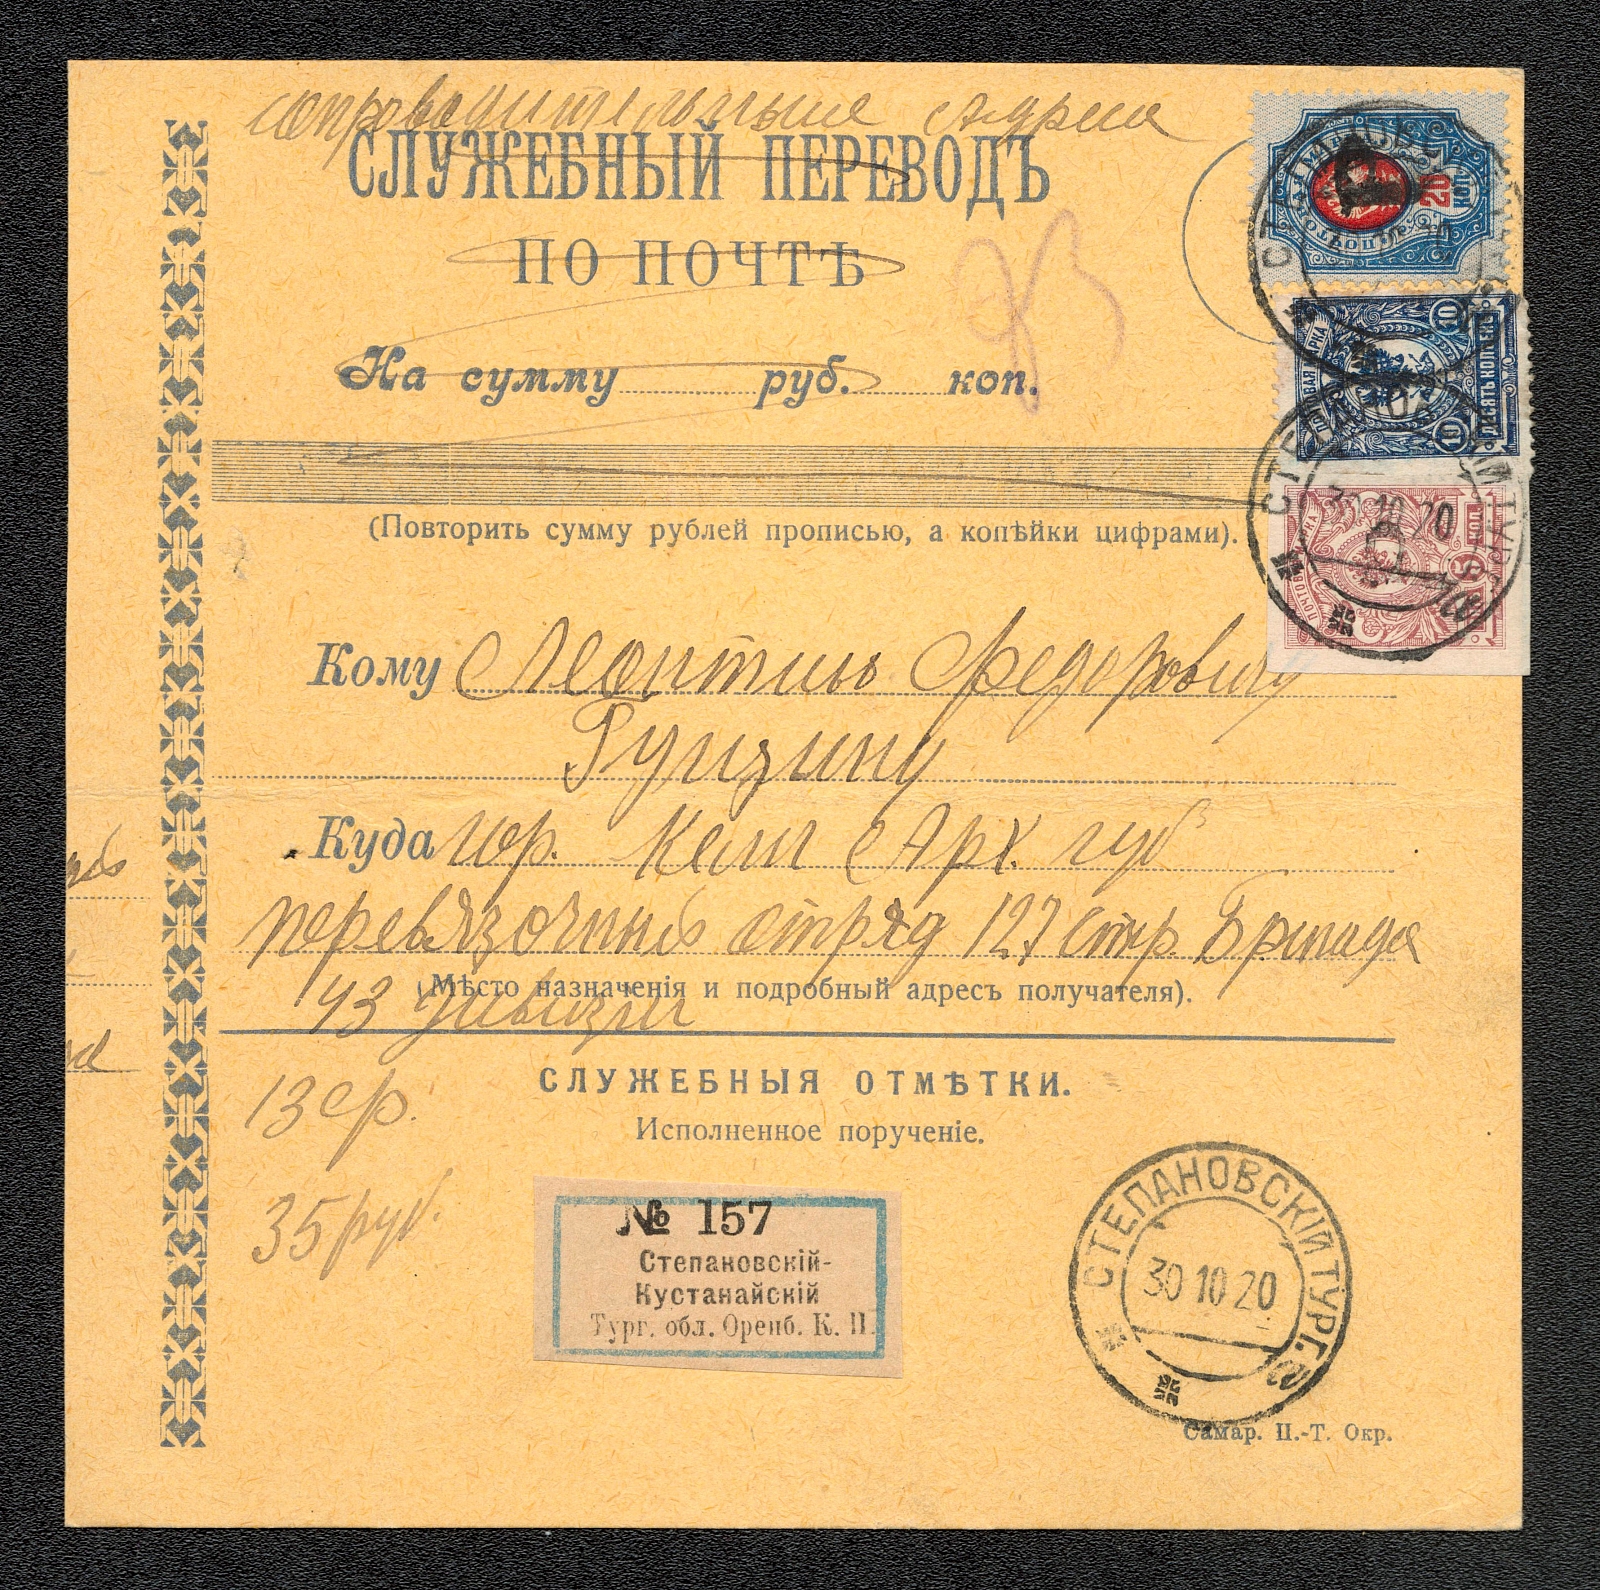 сопроводительные адреса
СЛУЖЕБНЫЙ ПЕРЕВОДЪ
ПО ПОЧТѢ
На сумму руб. коп.
(Повторить сумму рублей прописью, а копѣйки цифрами).
Кому Леонтию Федоровичу
Гунзину
Куда гор. Кемь Арх. губ
перевязочный отряд 127 стр. Бригада
43 дивизии
(Мѣсто назначенія и подробный адресъ получателя).
СЛУЖЕБНЫЯ ОТМѢТКИ.
Исполненное порученіе.
13 ф.
35 руб.
№ 157
Степановскій-
Кустанайскій
Тург. обл. Оренб. К. П.
СТЕПАНОВСКІЙ ТУРГ.
30 10 20
Самар. П.-Т. Окр.
20 КОП
10 ДЕСЯТЬ КОПѢЕКЪ 10
5 КОП.
30 10 20